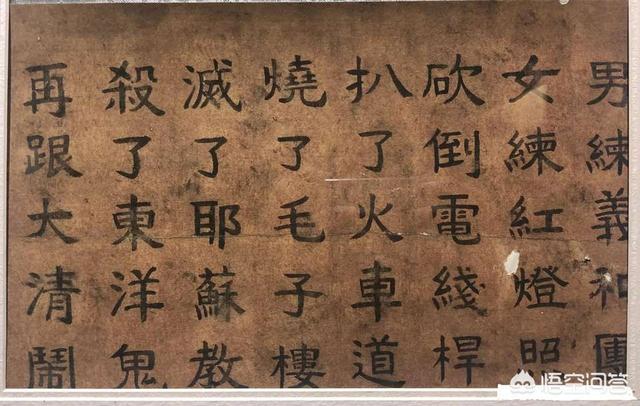 男練義和團
女練紅燈照
砍倒電綫桿
扒了火車道
燒了毛子樓
滅了耶蘇教
殺了東洋鬼
再跟大清鬧
悟空问答